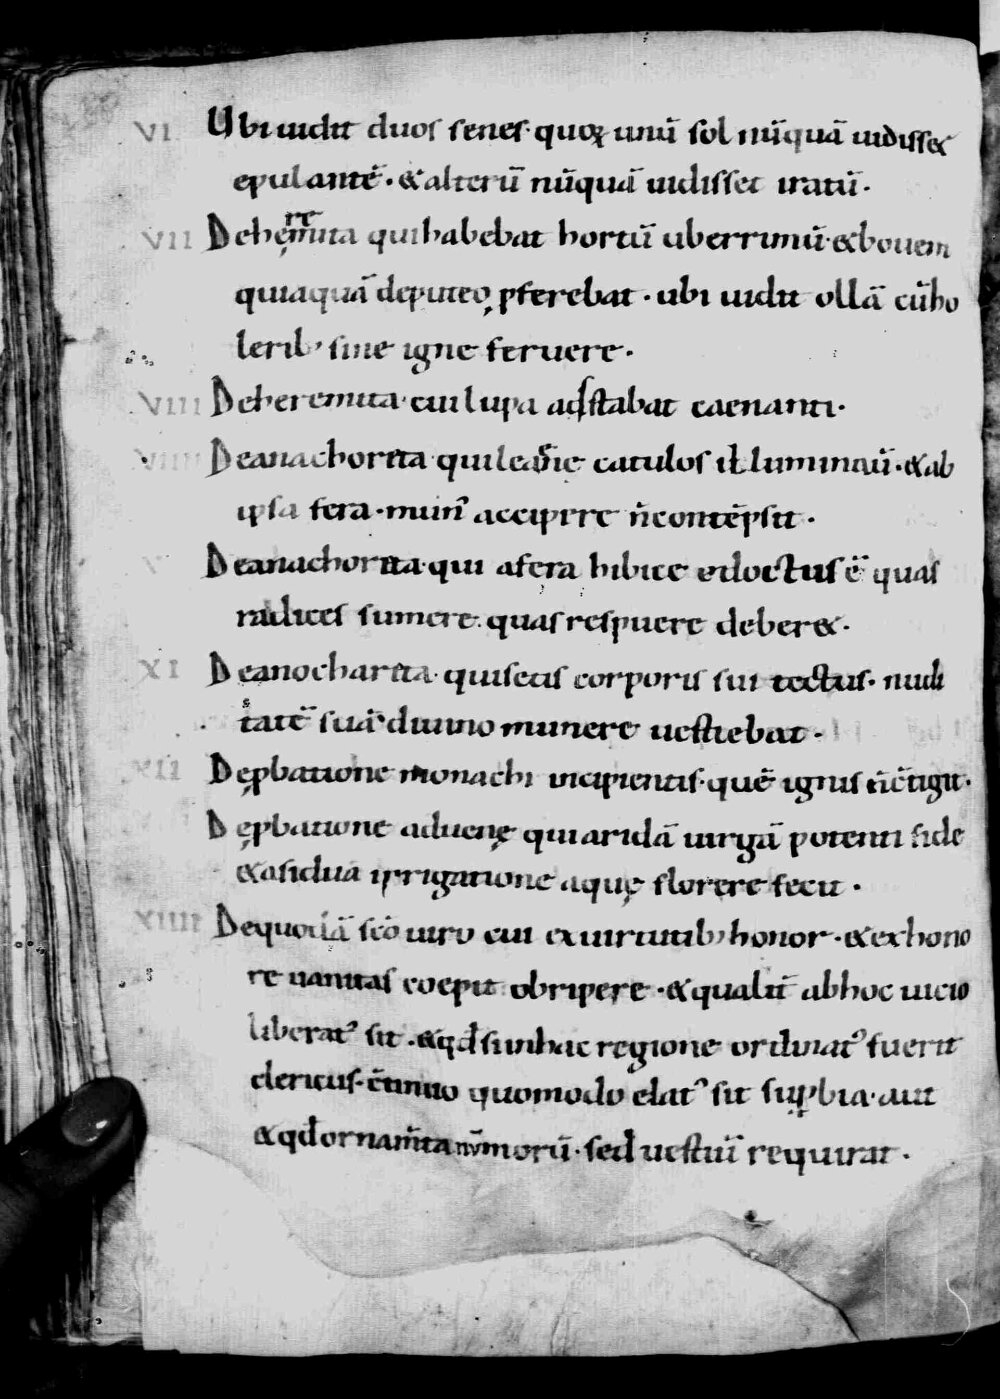 VI Ubi uidit duos senes· quoꝝ unũ sol nũquã uidisset
epulantẽ·&alterũ nũquã uidisset iratũ·
VII Deheremita quihabebat hortũ uberrimũ·&bouem
quiaquã deputeo ꝑferebat· ubi uidit ollã cũho
lerib; sine igne feruere·
VIII Deheremita· cui lupa adstabat caenanti·
VIIII Deanachorita· quileaenę catulos illuminauit·&ab
ipsa fera· munꝰ accipere ñcontẽpsit·
X Deanachorita· qui afera hibice edoctus ẽ quas
radices sumere· quas respuere deber&·
XI Deanochar&a· quisetis corporis sui tectus· nudi
tatẽ suã diuino munere uestiebat·
XII Deꝓbatione monachi incipientis· quẽ ignis ñc̃tigit·
Deꝓbatione aduenę qui aridã uirgã potenti fide
&asidua irrigatione aquę florere fecit·
XIIII Dequodã sc̃o uiro cui exuirtutib; honor·&exhono
re uanitas coepit obripere·&qualit̃ abhoc uicio
liberatꝰ sit·&qđ siinhac regione ordinatꝰ fuerit
clericus· c̃tinuo quomodo elatꝰ sit suꝑbia· aut
&qđ ornam̃ta ñ morũ· sed uestiũ requirat·